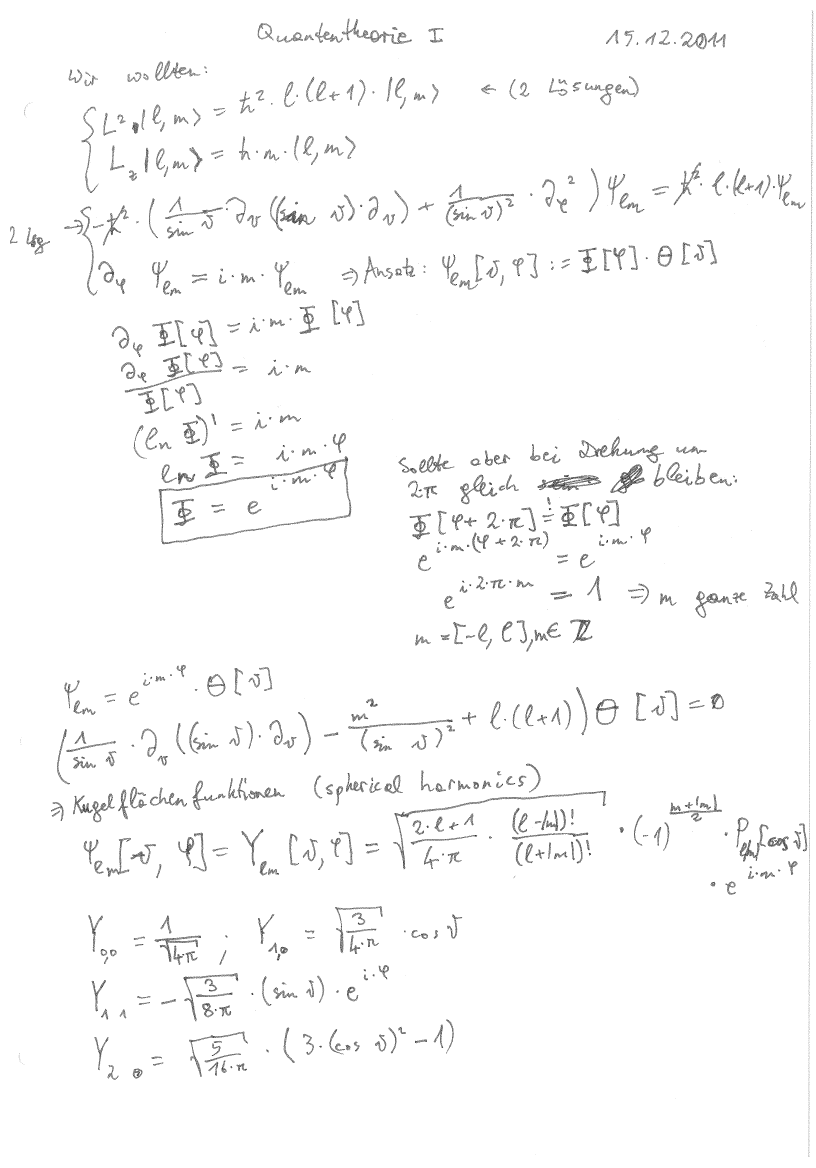 Quantentheorie I 15.12.2011
Wir wollten:
{ L² |l,m⟩ = ħ²·l·(l+1)·|l,m⟩ ← (2 Lösungen)
{ L_z |l,m⟩ = ħ·m·|l,m⟩
2 → { -ħ²·(1/(sin ϑ)·∂_ϑ((sin ϑ)·∂_ϑ) + 1/(sin ϑ)²·∂_φ²) Ψ_lm = ħ²·l·(l+1)·Ψ_lm
{ ∂_φ Ψ_lm = i·m·Ψ_lm ⇒ Ansatz: Ψ_lm[ϑ,φ] := Φ[φ]·Θ[ϑ]
∂_φ Φ[φ] = i·m·Φ[φ]
∂_φ Φ[φ] / Φ[φ] = i·m
(ln Φ)' = i·m
ln Φ = i·m·φ
Φ = e^(i·m·φ)
Sollte aber bei Drehung um
2π gleich bleiben:
Φ[φ+2·π] =! Φ[φ]
e^(i·m·(φ+2·π)) = e^(i·m·φ)
e^(i·2·π·m) = 1 ⇒ m ganze Zahl
m = [-l, l], m ∈ ℤ
Ψ_lm = e^(i·m·φ)·Θ[ϑ]
(1/(sin ϑ)·∂_ϑ((sin ϑ)·∂_ϑ) − m²/(sin ϑ)² + l·(l+1)) Θ[ϑ] = 0
⇒ Kugelflächenfunktionen (spherical harmonics)
Ψ_lm[ϑ, φ] = Y_lm[ϑ,φ] = √((2·l+1)/(4·π)·(l-|m|)!/(l+|m|)!)·(-1)^((m+|m|)/2)·P_l|m|[cos ϑ]
·e^(i·m·φ)
Y_0,0 = 1/√(4π) ; Y_1,0 = √(3/(4·π))·cos ϑ
Y_1 1 = -√(3/(8·π))·(sin ϑ)·e^(i·φ)
Y_2 0 = √(5/(16·π))·(3·(cos ϑ)² − 1)